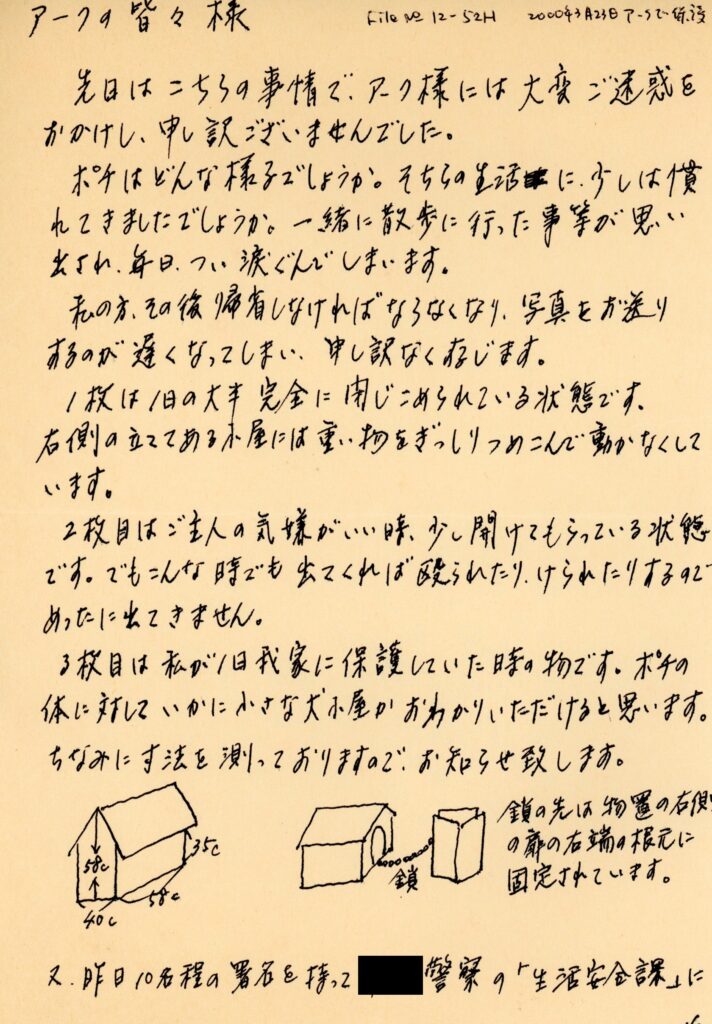 アークの皆々様
File № 12-52H 2000年3月23日アークで保護
先日はこちらの事情で、アーク様には大変ご迷惑を
おかけし、申し訳ございませんでした。
ポチはどんな様子でしょうか。そちらの生活に、少しは慣
れてきましたでしょうか。一緒に散歩に行った事等が思い
出され、毎日、つい涙ぐんでしまいます。
私の方、その後帰省しなければならなくなり、写真をお送り
するのが遅くなってしまい、申し訳なく存じます。
1枚は1日の大半完全に閉じこめられている状態です、
右側の立ててある小屋には重い物をぎっしりつめこんで動かなくして
います。
2枚目はご主人の気嫌がいい時、少し開けてもらっている状態
です。でもこんな時でも出てくれば殴られたり、けられたりするので
めったに出てきません。
3枚目は私が1日我家に保護していた時の物です。ポチの
体に対していかに小さな犬小屋かおわかりいただけると思います。
ちなみに寸法を測っておりますので、お知らせ致します。
58c
35c
58c
40c
鎖
鎖の先は物置の右側
の扉の右端の根元に
固定されています。
又、昨日10名程の署名を持って
警察の「生活安全課」に